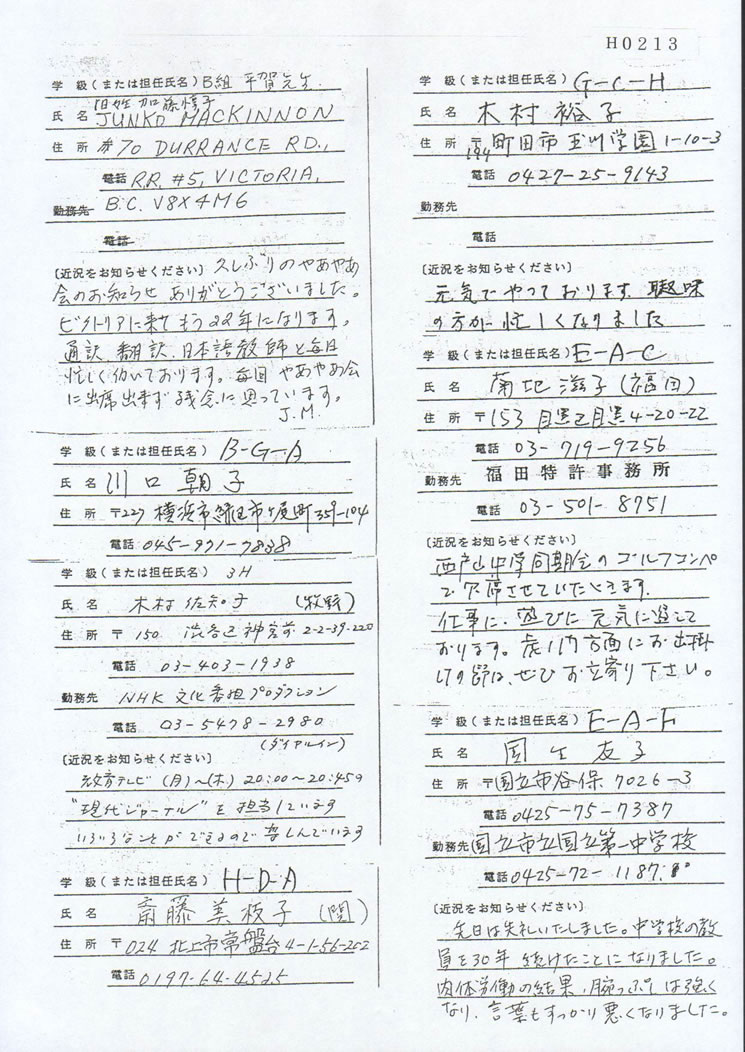 H0213
学 級(または担任氏名) B組 平賀先生
旧姓 加藤惇子
氏 名 JUNKO MACKINNON
住 所 #70 DURRANCE RD.,
電話 R.R. #5, VICTORIA,
勤務先 B.C. V8X4M6
電話
〔近況をお知らせください〕久しぶりのやあやあ
会のお知らせ ありがとうございました。
ビクトリアに来てもう22年になります。
通訳、翻訳、日本語教師と毎日
忙しく働いております。毎回 やあやあ会
に出席出来ず残念に思っています。
J.M.
学 級(または担任氏名) B-G-A
氏 名 川口 朝子
住 所 〒227 横浜市緑区市ヶ尾町359-104
電話 045-971-7838
学 級(または担任氏名) 3H
氏 名 木村 佐知子 (牧野)
住 所 〒 150 渋谷区神宮前 2-2-39-220
電話 03-403-1938
勤務先 NHK 文化番組プロダクション
電話 03-5478-2980
(ダイヤルイン)
〔近況をお知らせください〕
教育テレビ (月)~(木) 20:00~20:45の
"現代ジャーナル" を 担当しています
いろいろなことができるので楽しんでいます
学 級(または担任氏名) H-D-A
氏 名 斎藤 美枝子 (関)
住 所 〒024 北上市常盤台4-1-56-202
電話 0197-64-4525
学 級(または担任氏名) G-C-H
氏 名 木村 裕子
住 所 〒194 町田市玉川学園 1-10-3
電話 0427-25-9143
勤務先
電話
〔近況をお知らせください〕
元気でやっております。趣味
の方が忙しくなりました
学 級(または担任氏名) E-A-C
氏 名 菊地 滋子 (福田)
住 所 〒153 目黒区目黒4-20-22
電話 03-719-9256
勤務先 福田特許事務所
電話 03-501-8751
〔近況をお知らせください〕
西戸山中学同期会のゴルフコンペ
で欠席させていただきます。
仕事に、遊びに 元気に過して
おります。虎ノ門方面にお出掛
けの節は、ぜひ お立寄り下さい。
学 級(または担任氏名) E-A-F
氏 名 国生 友子
住 所 〒国立市谷保 7026-3
電話 0425-75-7387
勤務先 国立市立国立第一中学校
電話 0425-72-1187
〔近況をお知らせください〕
先日は失礼いたしました。中学校の教
員を30年 続けたことになりました。
肉体労働の結果、腕っぷしは強く
なり、言葉もすっかり悪くなりました。